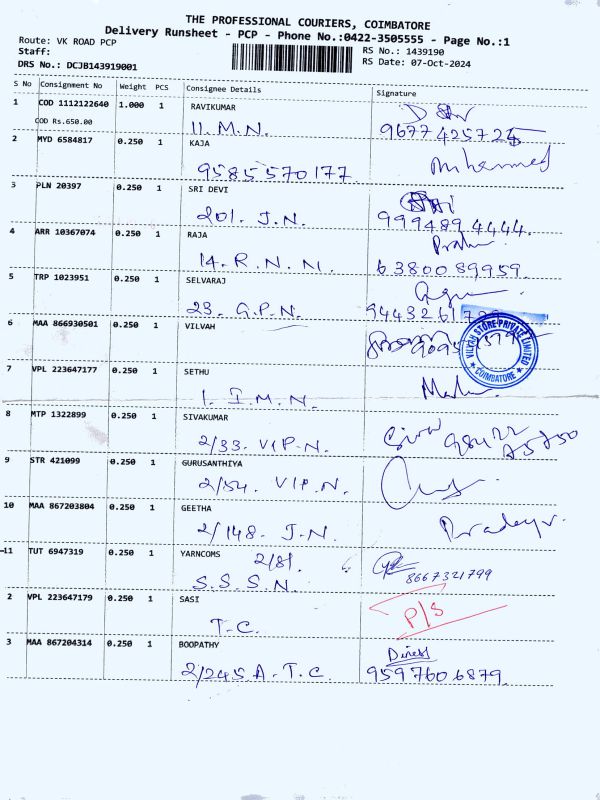 THE PROFESSIONAL COURIERS, COIMBATORE
Delivery Runsheet - PCP - Phone No.:0422-3505555 - Page No.:1
Route: VK ROAD PCP
RS No.: 1439190
Staff:
RS Date: 07-Oct-2024
DRS No.: DCJB143919001
S No Consignment No Weight PCS Consignee Details Signature
1 COD 1112122640 1.000 1 RAVIKUMAR
COD Rs.650.00 11. M.N.
2 MYD 6584817 0.250 1 KAJA
9585570177 Mohammed
3 PLN 20397 0.250 1 SRI DEVI
201. J.N. 9994894444.
4 ARR 10367074 0.250 1 RAJA
14. R.N.N. 6380089959.
5 TRP 1023951 0.250 1 SELVARAJ
23. G.P.N.
6 MAA 866930501 0.250 1 VILVAH
VILVAH STORE PRIVATE LIMITED
* COIMBATORE *
7 VPL 223647177 0.250 1 SETHU
1. I.M.N.
8 MTP 1322899 0.250 1 SIVAKUMAR
2/33. V.I.P.N. Siva 98422
75750
9 STR 421099 0.250 1 GURUSANTHIYA
2/54. V.I.P.N.
10 MAA 867203804 0.250 1 GEETHA
2/148. J.N.
11 TUT 6947319 0.250 1 YARNCOMS 2/81.
S.S.S.N. 8667321799
2 VPL 223647179 0.250 1 SASI P/S
T.C.
3 MAA 867204314 0.250 1 BOOPATHY
2/245 A. T.C. 9597606879.